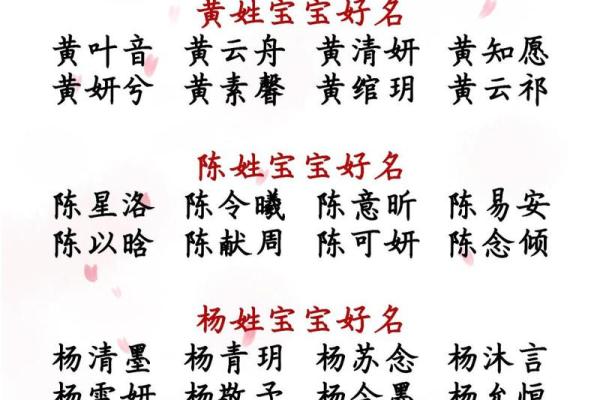 黄姓宝宝好名
黄叶音 黄云舟 黄清妍 黄知愿
黄妍兮 黄素馨 黄绾玥 黄云祁
陈姓宝宝好名
陈星洛 陈令曦 陈意昕 陈易安
陈以晗 陈献周 陈可妍 陈念倾
杨姓宝宝好名
杨清墨 杨青玥 杨苏念 杨沐言
杨雪妍 杨敬予 杨今墨 杨允恒